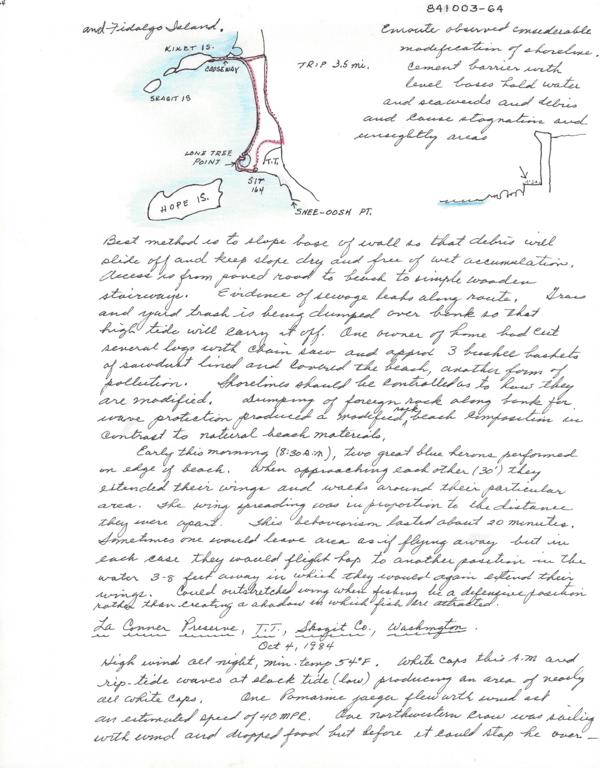 841003-64
and Fidalgo Island.
KIKET IS.
CAUSEWAY
SKAGIT IS
TRIP 3.5 mi.
LONE TREE
POINT
T.T.
SIT
164
HOPE IS.
SNEE-OOSH PT.
Enroute observed considerable
modification of shoreline.
cement barrier with
level bases hold water
and seaweeds and debris
and cause stagnation and
unsightly areas
Best method is to slope base of wall so that debris will
slide off and keep slope dry and free of wet accumulation.
Access is from paved road to beach to simple wooden
stairways. Evidence of sewage leaks along route. Grass
and yard trash is being dumped over bank so that
high tide will carry it off. One owner of home had cut
several logs with chain saw and approx 3 bushel baskets
of sawdust lined and covered the beach, another form of
pollution. Shorelines should be controlled as to how they
are modified. Dumping of foreign rock along bank for
wave protection produced a modified rock, beach composition in
contrast to natural beach materials.
Early this morning (8:30 A.M), two great blue herons performed
on edge of beach. When approaching each other (30') they
extended their wings and walks around their particular
area. The wing spreading was in proportion to the distance
they were apart. This behaviorism lasted about 20 minutes.
Sometimes one would leave area as if flying away but in
each case they would flight hop to another position in the
water 3-8 feet away in which they would again extend their
wings. Could outstretched wing when fishing be a defensive position
rather than creating a shadow in which fish are attracted.
La Conner Preserve, T.T., Skagit Co., Washington.
Oct 4, 1984
High wind all night, min. temp 54°F. White caps this A.M and
rip-tide waves at slack tide (low) producing an area of nearly
all white caps. One Pomarine jaeger flew with wind at
an estimated speed of 40 MPH. One northwestern crow was sailing
with wind and dropped food but before it could stop he over-